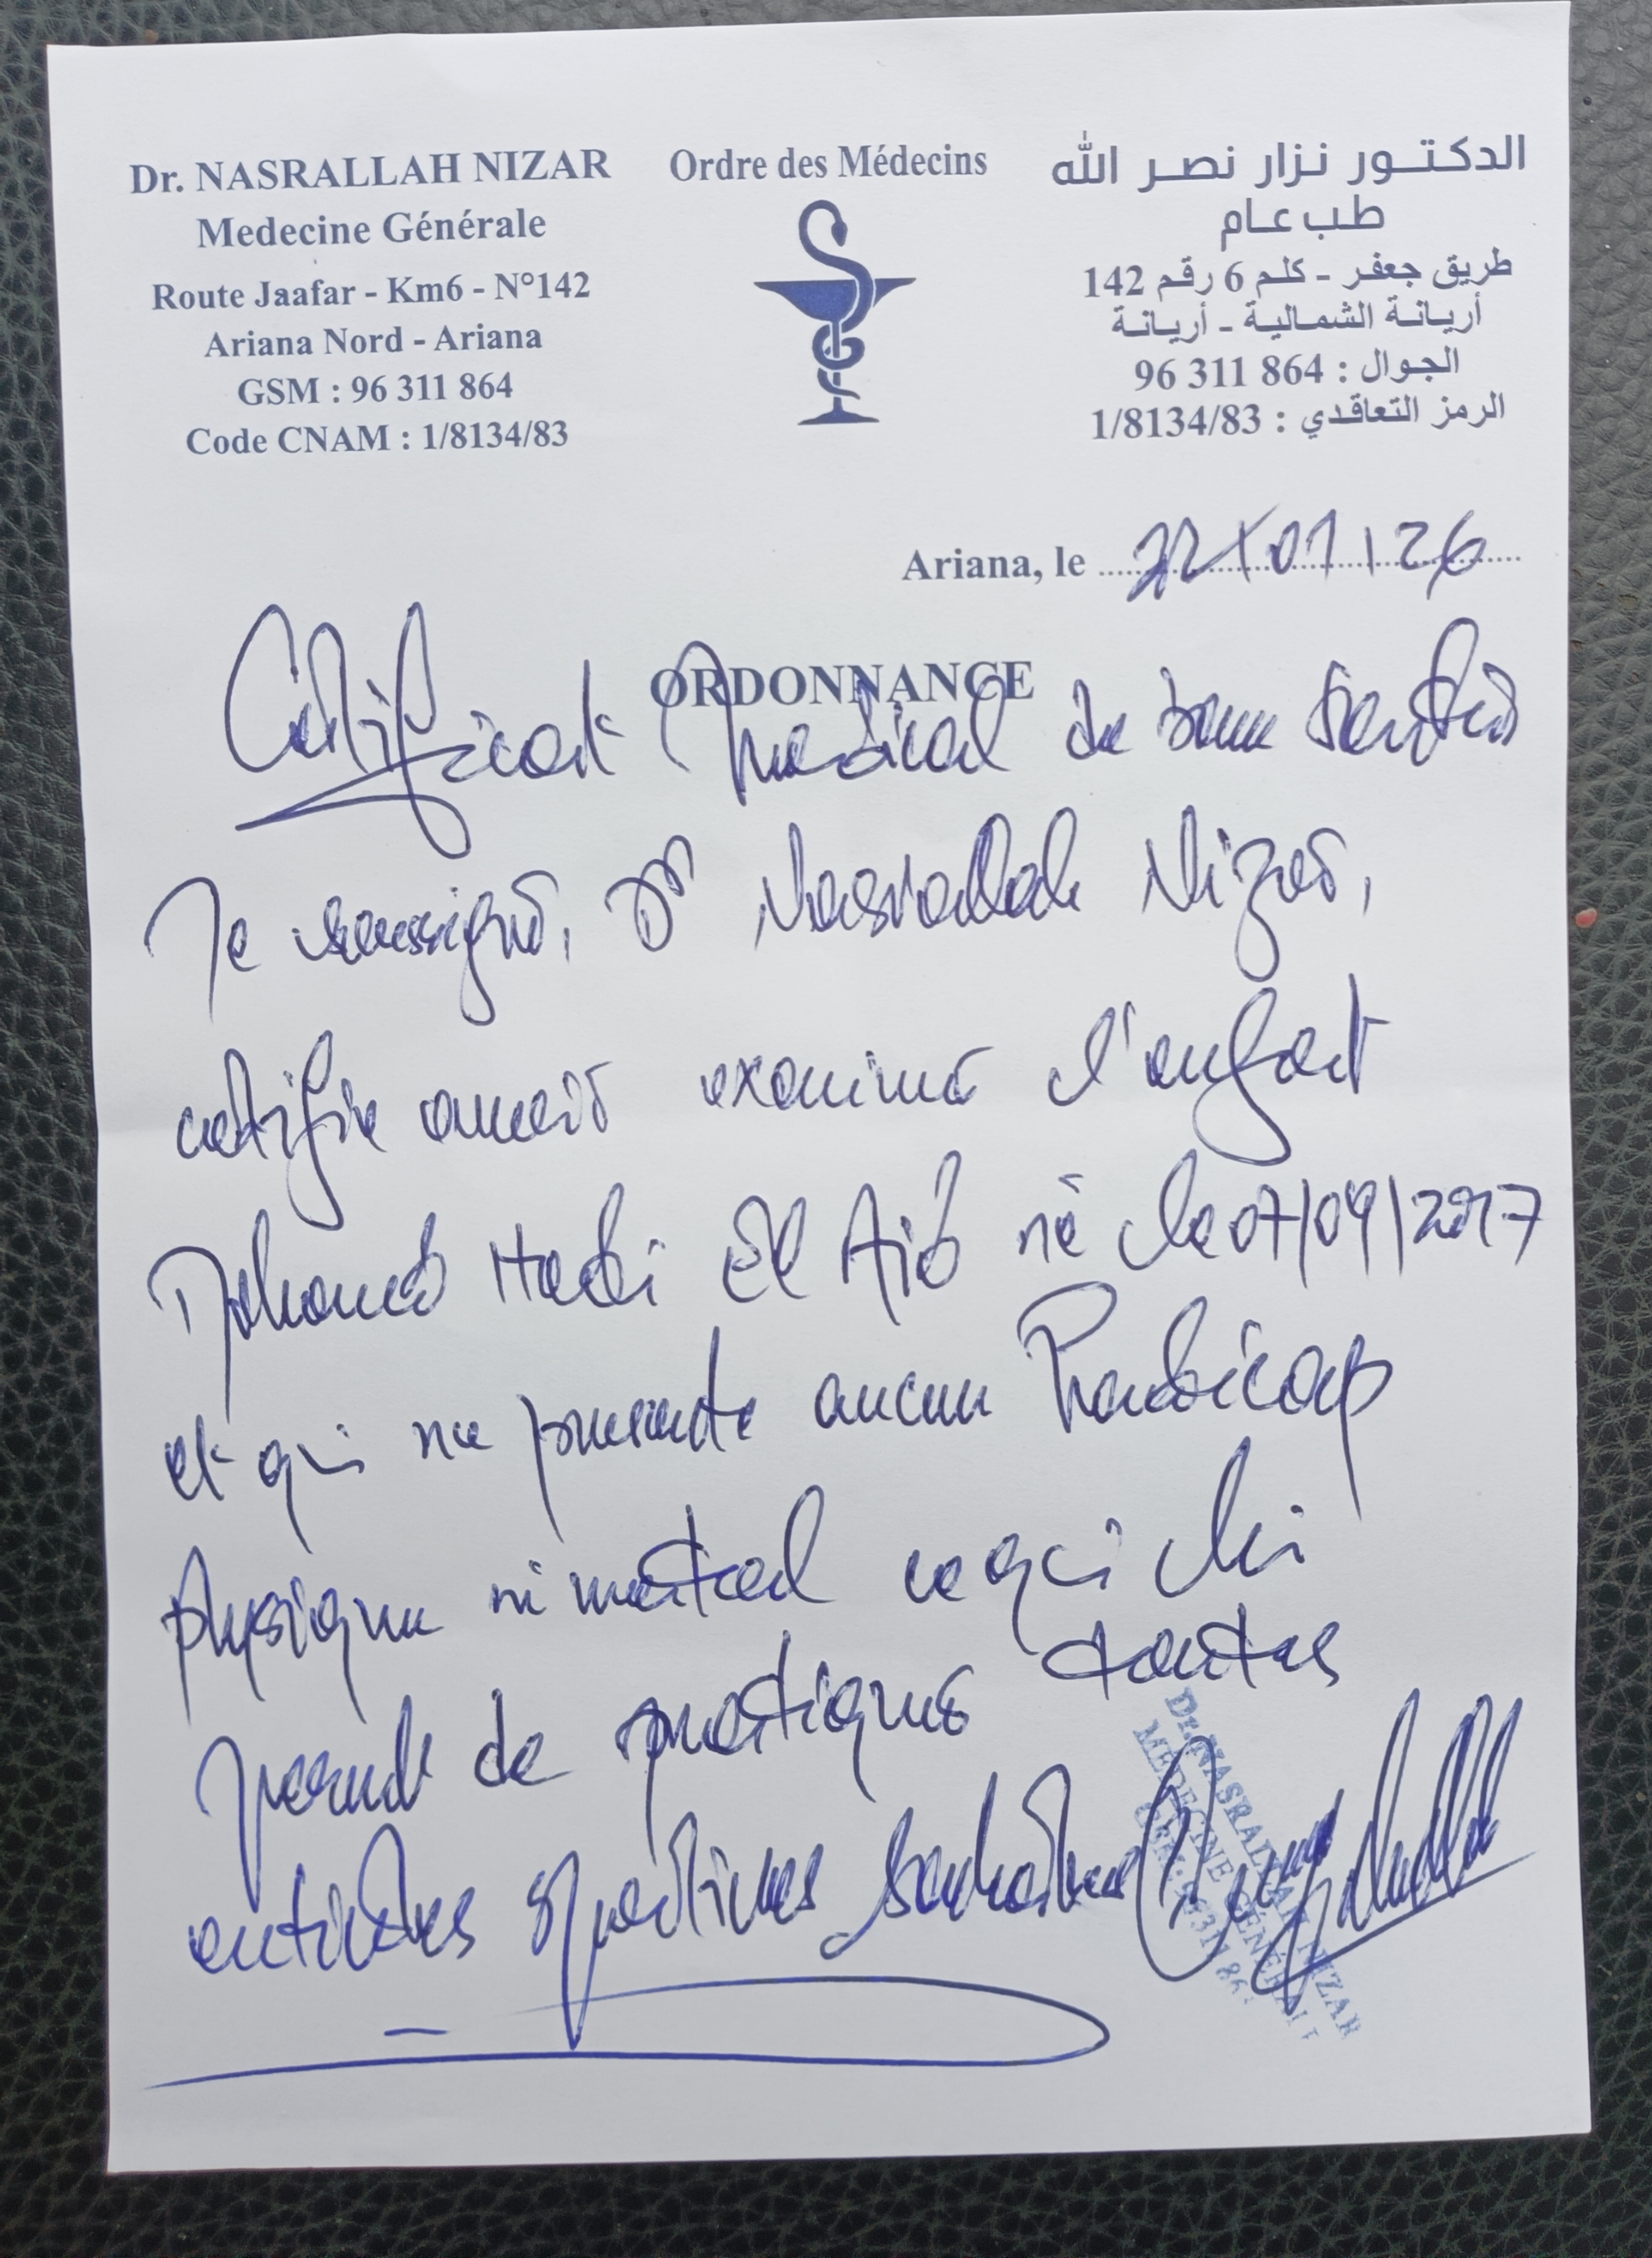 Dr. NASRALLAH NIZAR
Medecine Générale
Route Jaafar - Km6 - N°142
Ariana Nord - Ariana
GSM : 96 311 864
Code CNAM : 1/8134/83
Ordre des Médecins
الدكتور نزار نصر الله
طب عام
طريق جعفر - كلم 6 رقم 142
أريانة الشمالية - أريانة
الجوال : 96 311 864
الرمز التعاقدي : 1/8134/83
Ariana, le 22/01/26
ORDONNANCE
Certificat médical de bonne santé
Je soussigné, Dr Nasrallah Nizar,
certifie avoir examiné l'enfant
Mohamed Hadi El Aid né le 07/09/2017
et qui ne présente aucun handicap
physique ni mental ce qui lui
permet de pratiquer toutes
activités sportives souhaitées
Dr. NASRALLAH NIZAR
MEDECINE GÉNÉRALE
GSM: 96 311 864